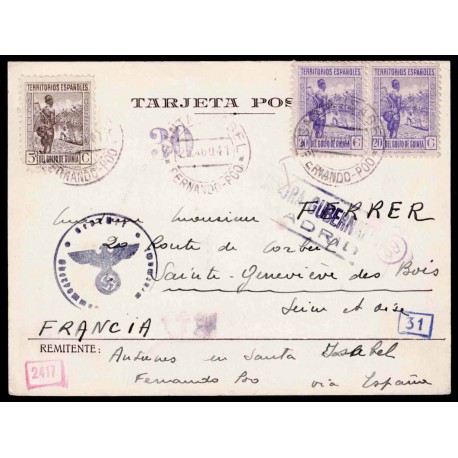 TERRITORIOS ESPAÑOLES
DEL GOLFO DE GUINEA
5 C
TERRITORIOS ESPAÑOLES
DEL GOLFO DE GUINEA
20 C
TERRITORIOS ESPAÑOLES
DEL GOLFO DE GUINEA
20 C
TARJETA POS
30
FERNANDO-POO
FERNANDO-POO
FERNANDO-POO
GUBERN
ADRID
Monsieur FERRER
20 Route de Corbeil
Sainte-Geneviève des Bois
Seine et Oise
FRANCIA
31
REMITENTE:
en Santa Isabel
Fernando Poo via España
2417